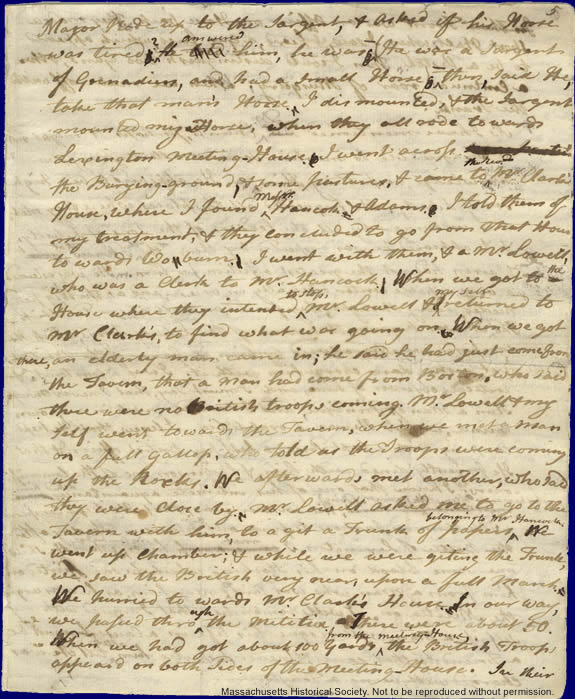 5
Major Rode up to the Sargent, & asked if his Horse
was tired? He answered him, he was. (He was a Sargent
of Grenadiers, and had a small Horse) then, said He,
take that man's Horse. I dismounted, & the Sargent
mounted my Horse, when they all rode towards
Lexington Meeting-House. I went across
the Burying-ground, & some pastures, & came to the Revd. Mr. Clark's
House, where I found Messrs. Hancok & Adams. I told them of
my treatment, & they concluded to go from that House
to wards Woburn. I went with them, & a Mr. Lowell,
who was a Clerk to Mr. Hancock. When we got to the
House where they intended to stop, Mr. Lowell & my self returned to
Mr. Clark's, to find what was going on. When we got
there, an elderly man came in; he said he had just come from
the Tavern, that a man had come from Boston, who said
there were no British troops coming. Mr. Lowell & my
self went towards the Tavern, when we met a man
on a full gallop, who told us the Troops were coming
up the Rocks. We afterwards met another, who said
they were close by. Mr. Lowell asked me to go to the
Tavern with him, to a git a Trunk of papers belonging to Mr. Hancock. We
went up Chamber; & while we were giting the Trunk,
we saw the British very near, upon a full March.
We hurried to wards Mr. Clark's House. In our way,
we passed through the Militia. There were about 50.
When we had got about 100 Yards from the meeting-House the British Troops
appeard on both Sides of the Meeting-House. In their
Massachusetts Historical Society. Not to be reproduced without permission.